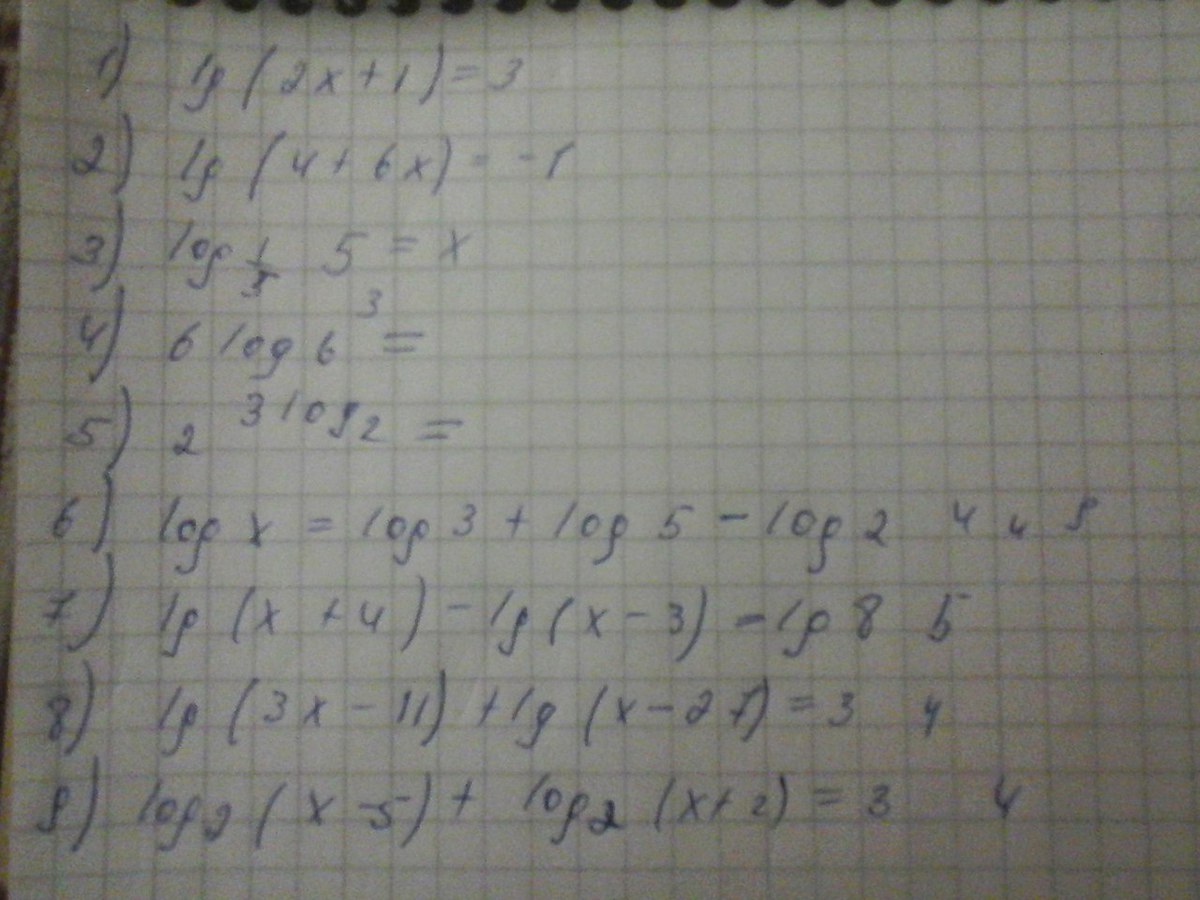 1) lg (2x+1)=3
2) lg (4+6x)=-1
3) log 1/5 5 = x
4) 6 log 6 3 =
5) 2 3 log 2 =
6) log x = log 3 + log 5 - log 2 4 и 9
7) lg (x+4) - lg (x-3) = lg 8 5
8) lg (3x-11) + lg (x-27) = 3 4
9) log2 (x-5) + log2 (x+2) = 3 4